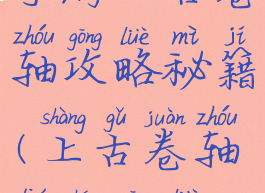 zhóu gōng lüè mì jí
轴攻略秘籍
shàng gǔ juàn zhóu
(上古卷轴